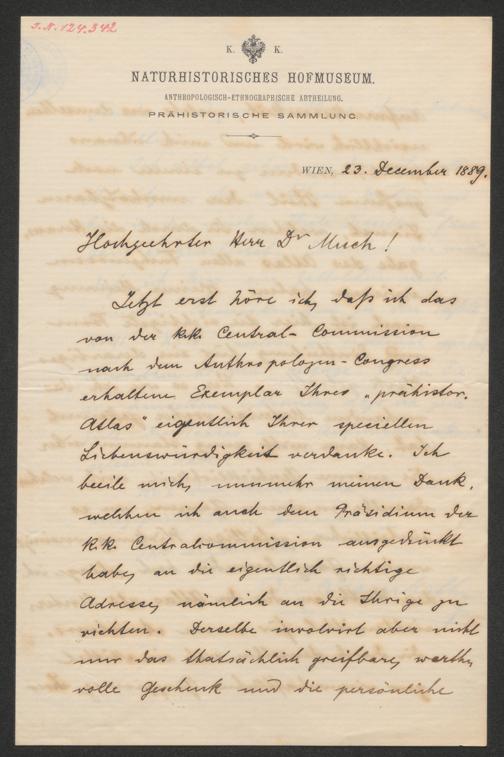 J.N. 124.342
K. K.
NATURHISTORISCHES HOFMUSEUM.
ANTHROPOLOGISCH-ETHNOGRAPHISCHE ABTHEILUNG.
PRÄHISTORISCHE SAMMLUNG.
WIEN, 23. December 1889.
Hochgeehrter Herr Dr Much!
Jetzt erst höre ich, daß ich das
von der k.k. Central-Commission
nach dem Anthropologen-Congress
erhaltene Exemplar Ihres „prähistor.
Atlas" eigentlich Ihrer speziellen
Liebenswürdigkeit verdanke. Ich
beeile mich, nunmehr meinen Dank,
welchen ich auch dem Präsidium der
k.k. Centralcommission ausgedrückt
habe, an die eigentlich richtige
Adresse, nämlich an die Ihrige zu
richten. Derselbe involvirt aber nicht
nur das thatsächlich greifbare, werth-
volle Geschenk und die persönliche